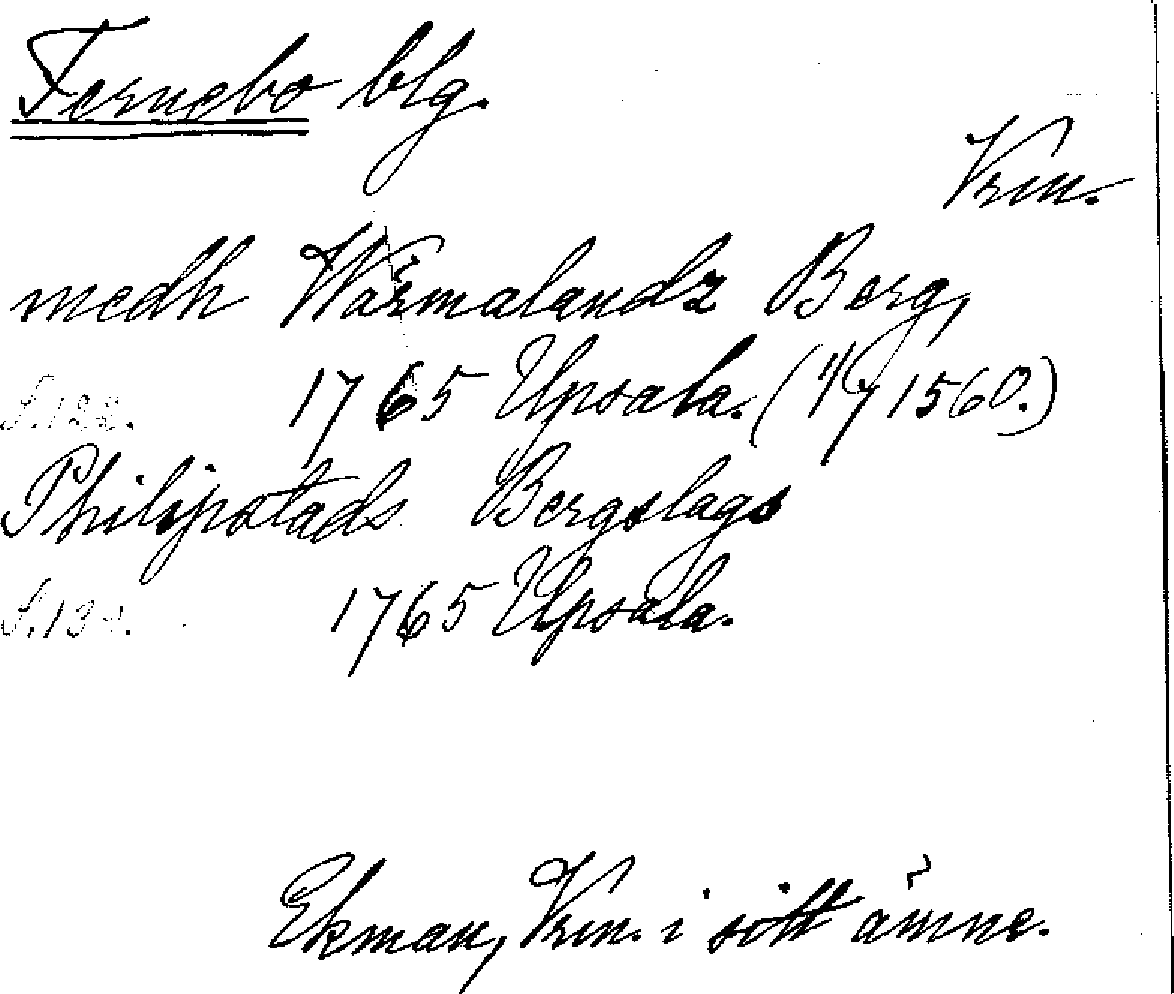 Fernebo blg.
Vrm.
medh Wärmalandz Berg,
1765 Upsala. (4/7 1560.)
Philipstads Bergslags
S.13
1765 Upsala.
Ekman, Vrm. i sitt ämne.